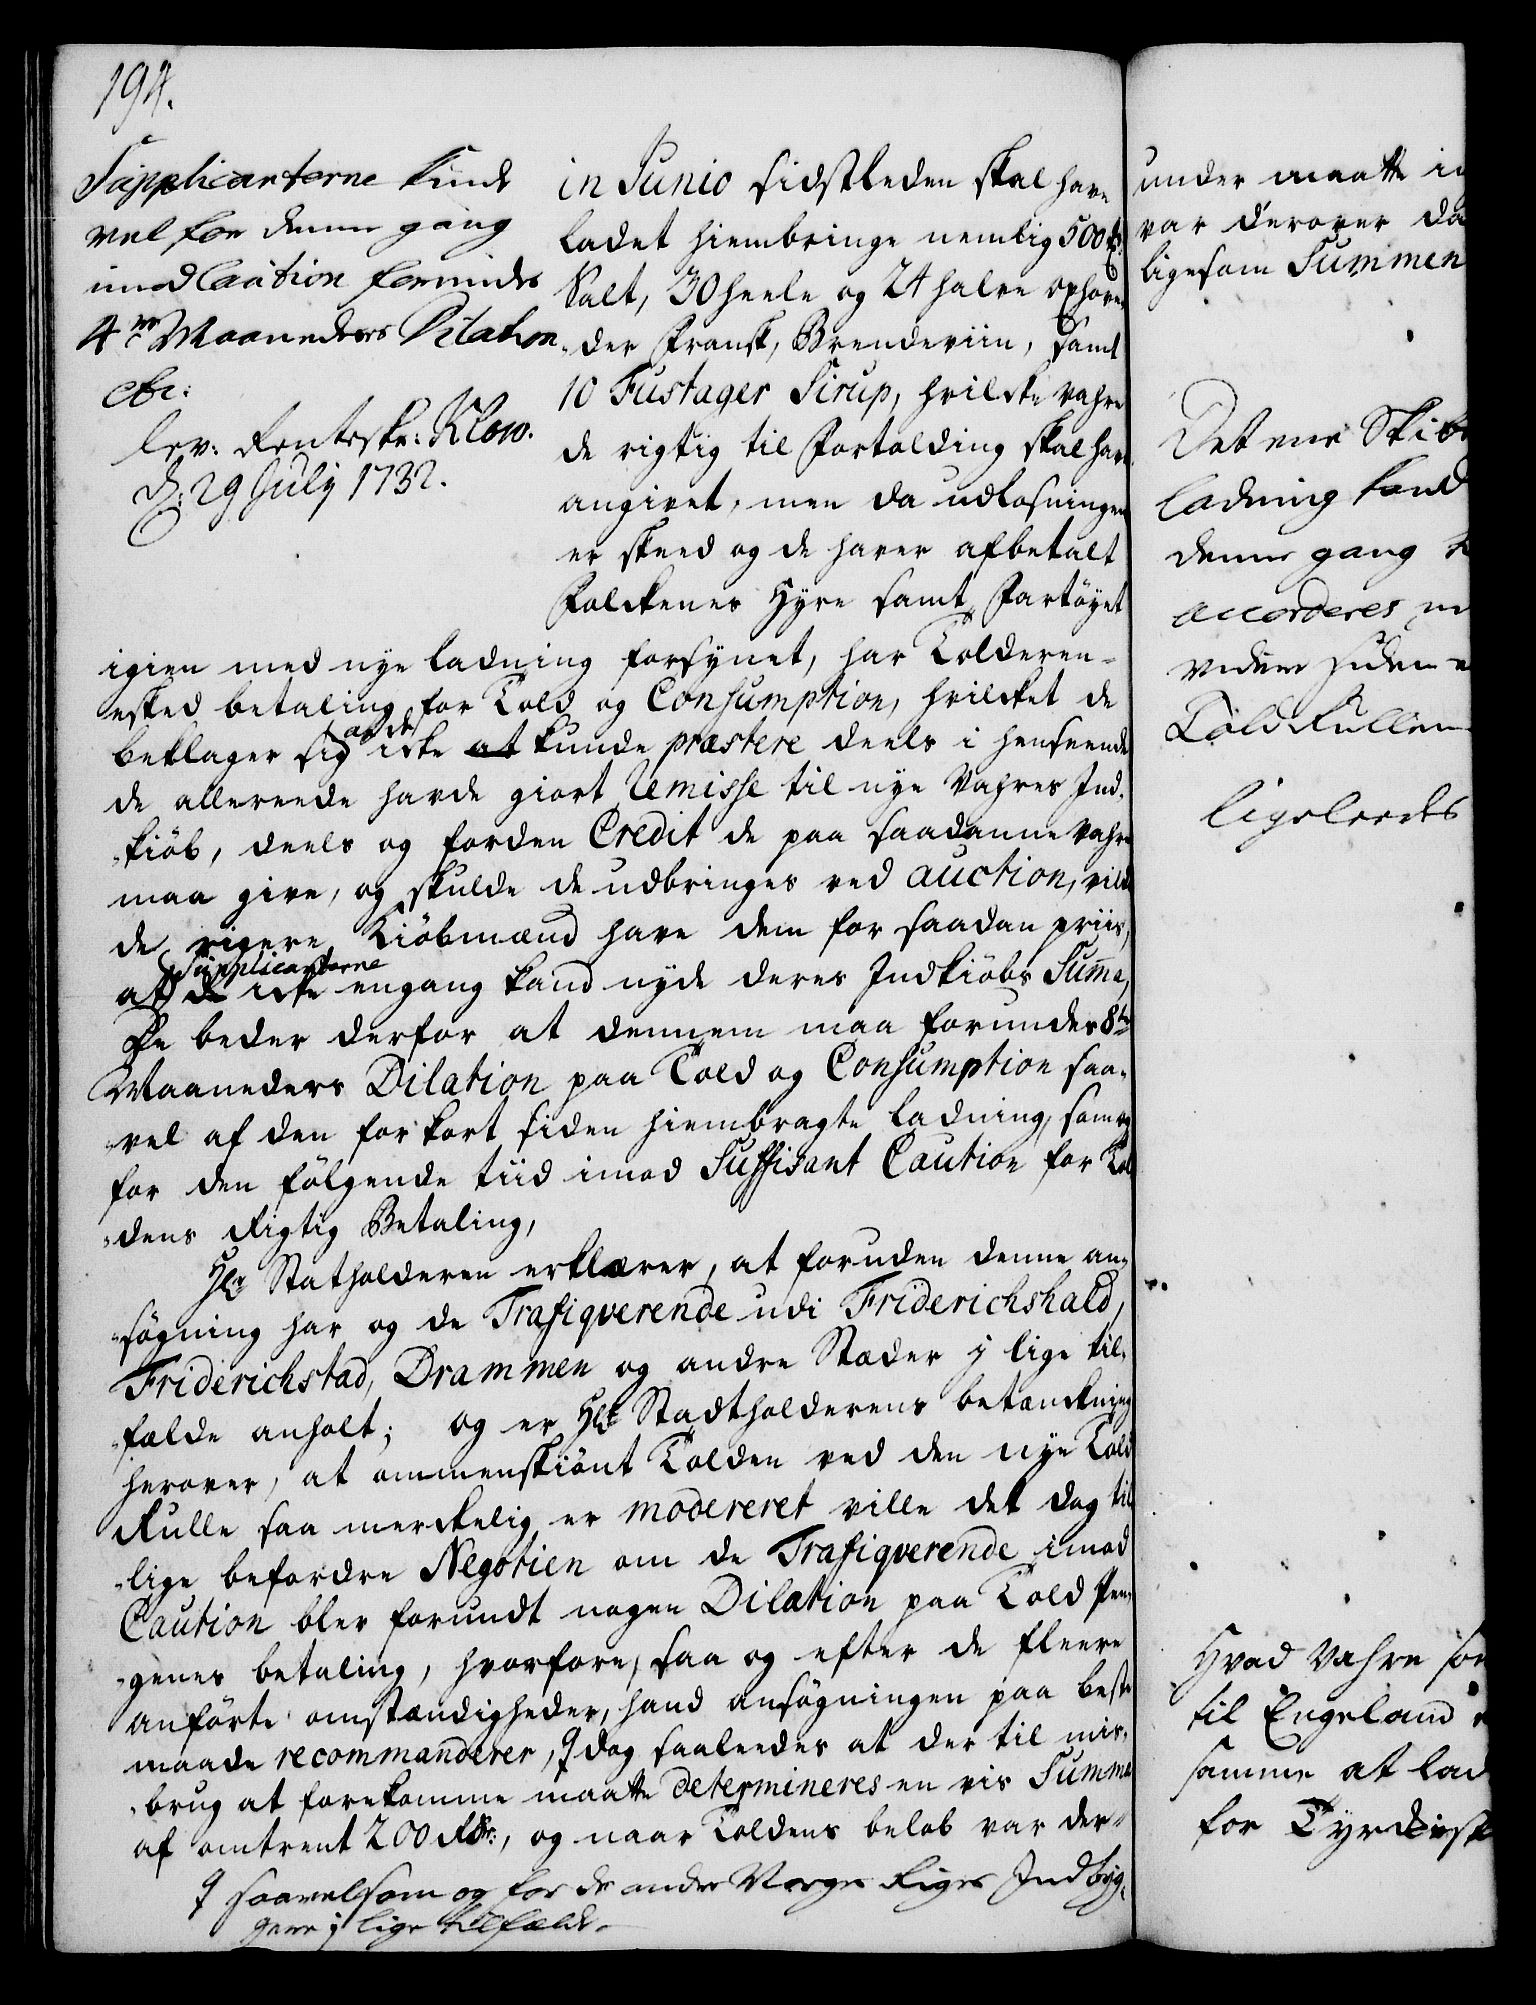 194.
Supplicanterne kunde
vel for denne gang
imod Caution forundes
4re Maaneders Dilation
etc:
lev: Renteskr: Klow.
d: 29 July 1732.
in Junio sidstleden skal have
ladet hiembringe nemlig 500 t:
Salt, 30 heele og 24 halve Oxhove-
der Fransk, Brendeviin, samt
10 Fustager Sirup, hvilcke vahre
de rigtig til Fortolding skal have
angivet, men da udlosningen
er skeed og de haver afbetalt
Folckenes Hyre samt Fartöyet
igien med nye ladning forsynet, har Tolderen
esked betaling for Told og Consumption, hvilcket de
beklager sig at de icke at kunde præstere deels i henseende
de allereede havde giort Remisse til nye Vahres Ind-
kiöb, deels og for den Credit de paa saadanne vahre
maa give, og skulde de udbringes ved auction, vilde
de rigere Kiöbmænd have dem for saadan priis,
at de Supplicanterne icke engang kand nyde deres Indkiöbs Suma,
De beder derfor at dennem maa forundes 8te
Maaneders Dilation paa Told og Consumption saa-
vel af den for kort siden hiembragte ladning, som og
for den fölgende tiid imod Suffisant Caution for Tol-
dens Rigtig Betaling,
Hr Statholderen erklærer, at foruden denne an-
søgning har og de Trafiqverende udi Friderichshald,
Friderichstad, Drammen og andre Stæder j lige til-
fælde anholt; og er Hr Stadtholderens betænckning
herover, at ommenskiönt Tolden ved den nye Told
Rulle saa merckelig er modereret ville det dog til
lige befordre Negotien om de Trafiqverende imod
Caution blev forundt nogen Dilation paa Told Pen-
genes betaling, hvorfore, saa og efter de fleere
anförte omstændigheder, hand ansøgningen paa beste
maade recommanderer, dog saaledes at der til mis-
brug at forekomme maatte determineres en vis Summa
af omtrent 200 Rdr:, og naar Toldens beløb var der-
saavelsom og for de andre Norges Riges Indbyg-
gere j lige tilfælde.
under maatte in
var derover da
ligesom Summen
Det ene Skibs
ladning kand
denne gang
accorderes
videre siden
Told Rullen
ligeleedes
Hvad Vahre som
til Engeland
samme at lad
for